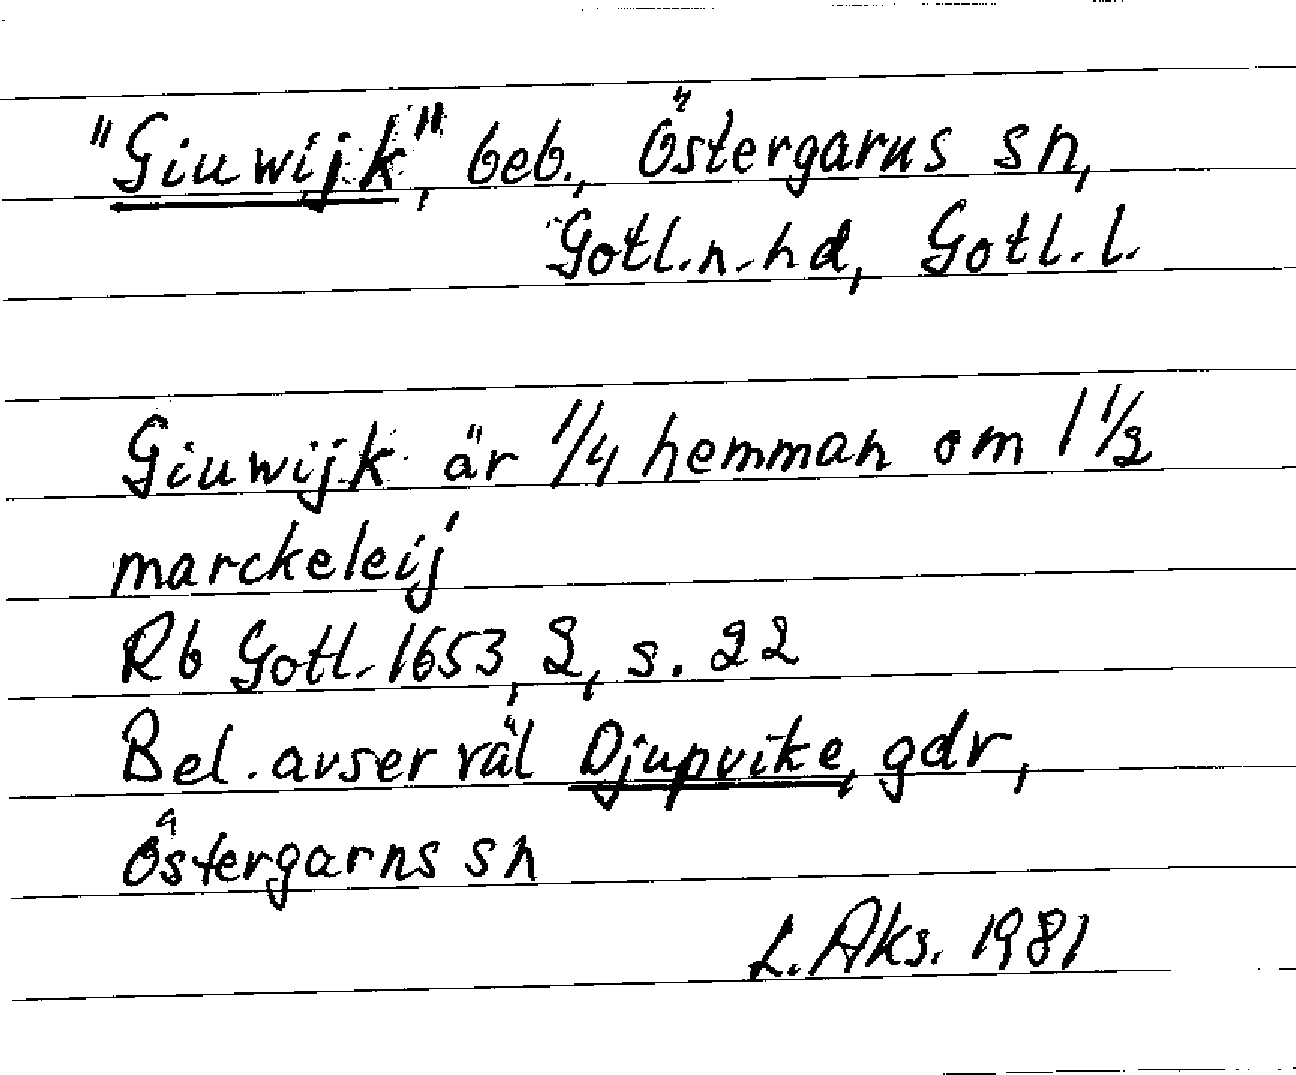 "Giuwijk", beb., Östergarns sn,
Gotl. n. hd, Gotl. l.
Giuwijk är 1/4 hemman om 1 1/2
marckeleij
Rb Gotl. 1653, 2, s. 22
Bel. avser väl Djupvike, gdr,
Östergarns sn
L. Aks. 1981